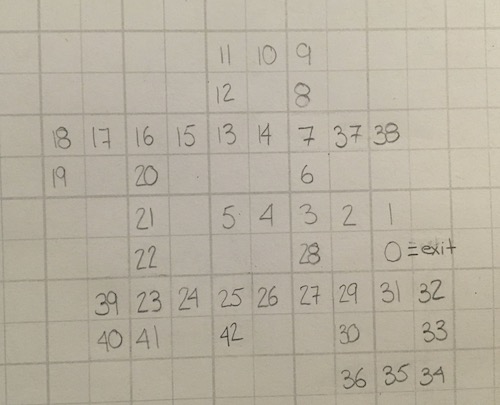 11 10 9
12 8
18 17 16 15 13 14 7 37 38
19 20 6
21 5 4 3 2 1
22 28 0=exit
39 23 24 25 26 27 29 31 32
40 41 42 30 33
36 35 34